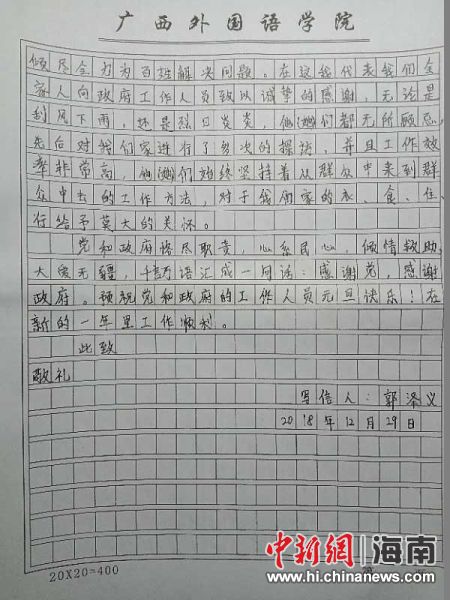 广西外国语学院
倾尽全力为百姓解决问题。在这我代表我们全
家人向政府工作人员致以诚挚的感谢，无论是
刮风下雨，还是烈日炎炎，他们都无所顾忌，
先后对我们家进行了多次的探访，并且工作效
率非常高，他们始终坚持着从群众中来到群
众中去的工作方法，对于我们家的衣、食、住、
行给予莫大的关怀。
党和政府恪尽职责，心系民心，倾情救助，
大爱无疆，千言万语汇成一句话：感谢党，感谢
政府。预祝党和政府的工作人员元旦快乐！在
新的一年里工作顺利。
此致
敬礼
写信人：郭泽义
2018年12月29日
20X20=400
中新网 海南
www.hi.chinanews.com